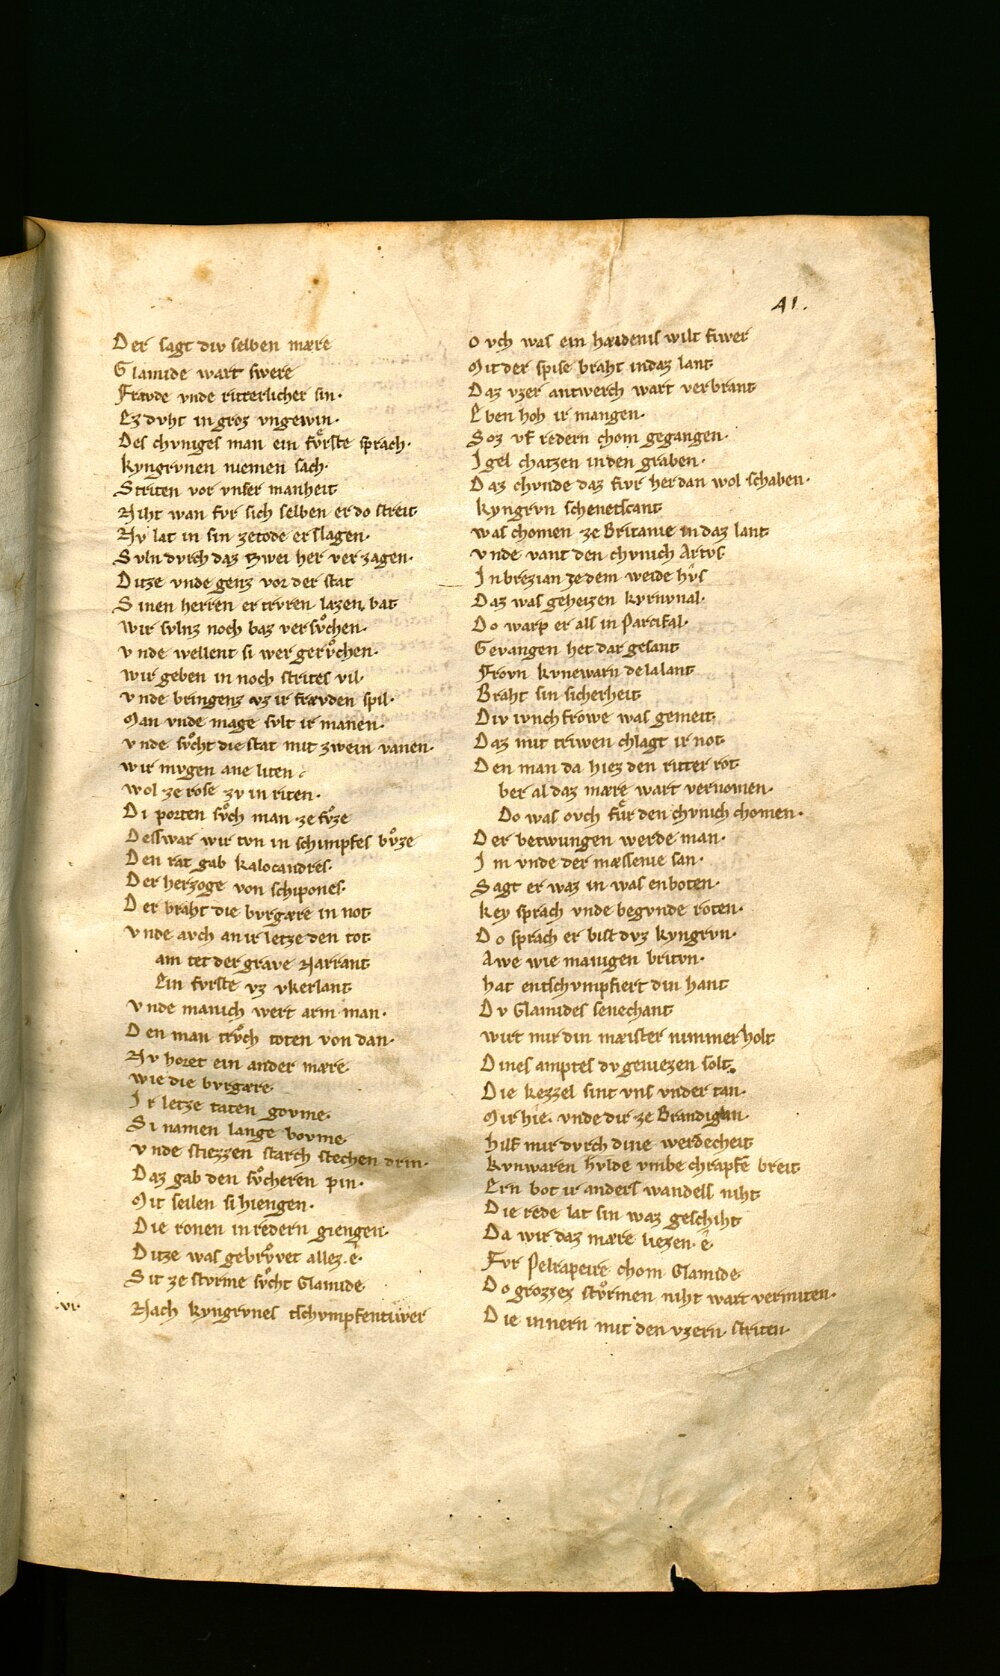 41.
Der sagt div selben mære
Glamide wart swere
Frævde vnde ritterlicher sin.
Ez dvht in groz vngewin.
Des chvniges man ein fv̊rste sprach.
kyngrvnen niemen sach.
Striten vor vnser manheit
Niht wan fvr sich selben er do streit
Nv lat in sin zetode erslagen.
Svln dvrch daz zwei her verzagen.
Ditze vnde genz vor der stat
Sinen herren er trvren lazen bat
Wir svlnz noch baz versv̊chen.
vnde wellent si wer gerv̊chen.
wir geben in noch strites vil.
vnde bringenz vz ir frævden spil.
Man vnde mage svlt ir manen.
vnde sv̊cht die stat mit zwein vanen.
wir mvgen ane liten
wol ze rose zv in riten.
Di porten sv̊ch man ze fv̊ze
Desswar wir tvn in schimpfes bv̊ze
Den rat gab kalocandres.
Der herzoge von schipones.
Der braht die bvrgære in not
vnde avch an ir letze den tot
am tet der grave Narrant
Ein fvrste vz vkerlant
vnde manich wert arm man.
Den man trv̊ch toten von dan.
Nv horet ein ander mære.
wie die bvrgære
Ir letze taten govme.
Si namen lange bovme
vnde stiezzen starch stechen drin.
Daz gab den sv̊cheren pin.
Mit seilen si hiengen.
Die ronen in redern giengen.
Ditze was gebrv̊vet allez. e.
Sit ze stvrme sv̊cht Glamide
.vr. Nach kyngrvnes tschvmpfentiwer
Ovch was ein hæidenis wilt fiwer
Mit der spise braht indaz lant
Daz vzer antwerch wart verbrant
Eben hoh ir mangen.
Soz vf redern chom gegangen.
Igel chatzen inden graben.
Daz chvnde daz fivr her dan wol schaben.
kyngrvn schenetscant
was chomen ze Britanie in daz lant
vnde vant den chvnich Artvs
In brezian ze dem weide hvs
Daz was geheizen kyrnvnal.
Do warp er als in Parcifal.
Gevangen het dar gesant
Frovn kvnewarn delalant
Braht sin sicherheit
Div ivnchfrowe was gemeit
Daz mit triwen chlagt ir not
Den man da hiez den ritter rot
ber al daz mære wart vernomen.
Do was ovch fv̊r den chvnich chomen.
Der betwungen werde man.
Im vnde der mæssenie san.
Sagt er waz in was enboten.
key sprach vnde begvnde roten.
Do sprach er bist dvz kyngrvn.
Awe wie manigen britvn.
hat entschvmpfiert din hant
Dv Glamides senechant
wirt mir din mæister nimmer holt
Dines amptes dv geniezen solt.
Die kezzel sint vns vnder tan.
Mir hie. vnde dir ze Brandigan.
hilf mir dvrch dine werdecheit
kvnwaren hvlde vmbe chrapfe breit
Ern bot ir anders wandels niht
Die rede lat sin waz geschiht
Da wir daz mære liezen. e.
Fvr Pelrapeire chom Glamide
Do grozzez stv̊rmen niht wart vermiten.
Die innern mit den vzern striten.